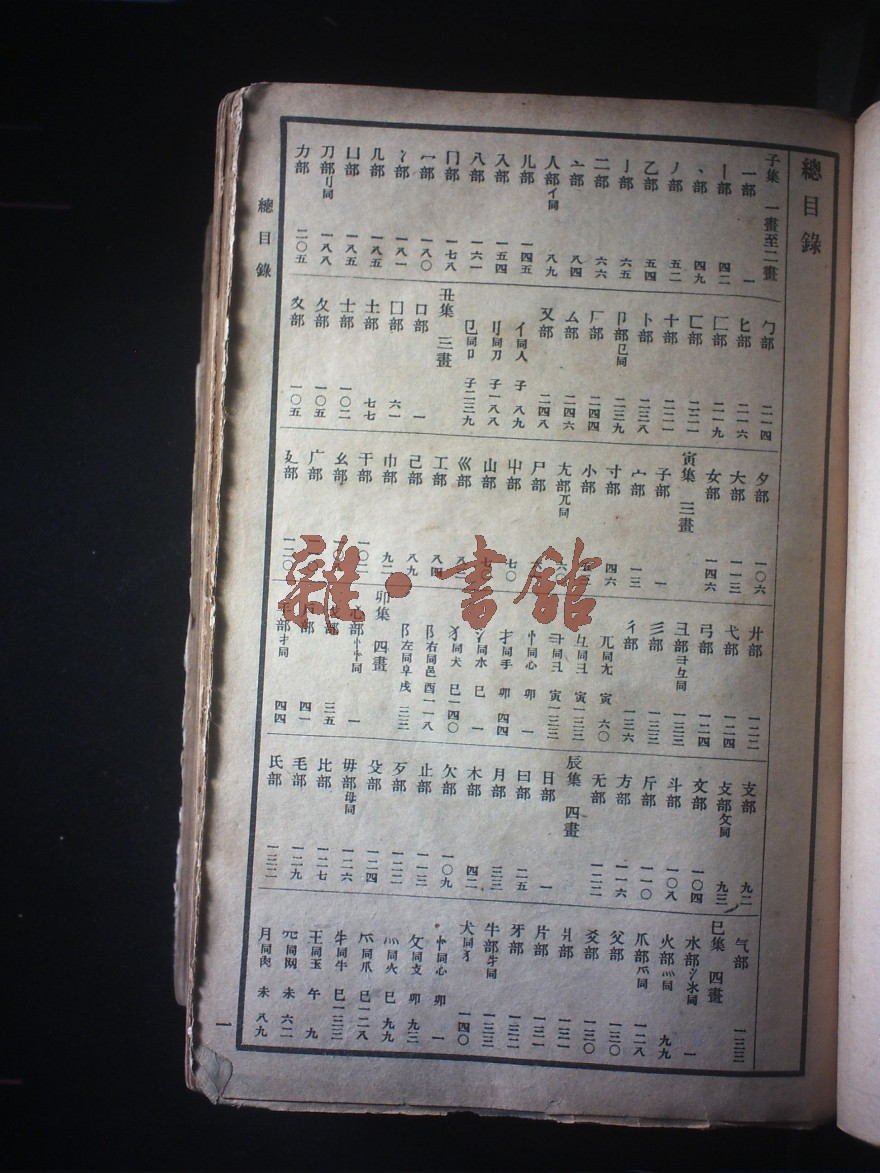 總目錄
子集 一畫至二畫
一部 一
丨部 四二
丶部 四九
丿部 五二
乙部 五四
亅部 六五
二部 六六
亠部 八四
人部亻同 八九
儿部 一四五
入部 一五四
八部 一六一
冂部 一七八
冖部 一八〇
冫部 一八一
几部 一八五
凵部 一八五
刀部刂同 一八八
力部 二〇五
勹部 二一四
匕部 二一六
匚部 二一九
匸部 二二一
十部 二二二
卜部 二三八
卩部㔾同 二三九
厂部 二四四
厶部 二四六
又部 二四八
亻同人 子 八九
刂同刀 子一八八
㔾同卩 子二三九
丑集 三畫
口部 一
囗部 六一
土部 七七
士部 一〇二
夂部 一〇五
夊部 一〇五
夕部 一〇六
大部 一一三
女部 一四六
寅集 三畫
子部 一
宀部 一三
寸部 四六
小部
尢部兀同
尸部
屮部 七〇
山部
巛部
工部 八四
己部 八九
巾部 九二
干部 一〇二
幺部
广部
廴部 一二〇
廾部 一二二
弋部 一二四
弓部 一二四
彐部彑同 一三三
彡部 一三三
彳部 一三六
兀同尢 寅 六〇
彑同彐 寅一三三
彐同彐 寅一三三
忄同心 卯 一
扌同手 卯 四四
氵同水 巳 一
犭同犬 巳一四〇
阝右同邑 酉一一八
阝左同阜 戌 三三
卯集 四畫
心部忄㣺同 一
戈部 三五
戶部 四一
手部扌同 四四
支部 九二
攴部攵同 九三
文部 一〇四
斗部 一〇八
斤部 一一〇
方部 一一六
无部 一二二
辰集 四畫
日部 一
曰部 二五
月部 三三
木部 四二
欠部 一〇九
止部 一一三
歹部 一二二
殳部 一二四
毋部母同 一二六
比部 一二七
毛部 一二九
氏部 一三二
气部 一三三
巳集 四畫
水部氵氺同 一
火部灬同 九九
爪部爫同 一二八
父部 一三〇
爻部 一三〇
爿部 一三一
片部 一三一
牙部 一三二
牛部牜同 一三三
犬同犭 一四〇
㣺同心 卯 一
攵同攴 卯 九三
灬同火 巳 九九
爫同爪 巳一二八
牜同牛 巳一三三
王同玉 午 九
罒同网 未 六二
月同肉 未 八九
總目錄
一
雜·書館